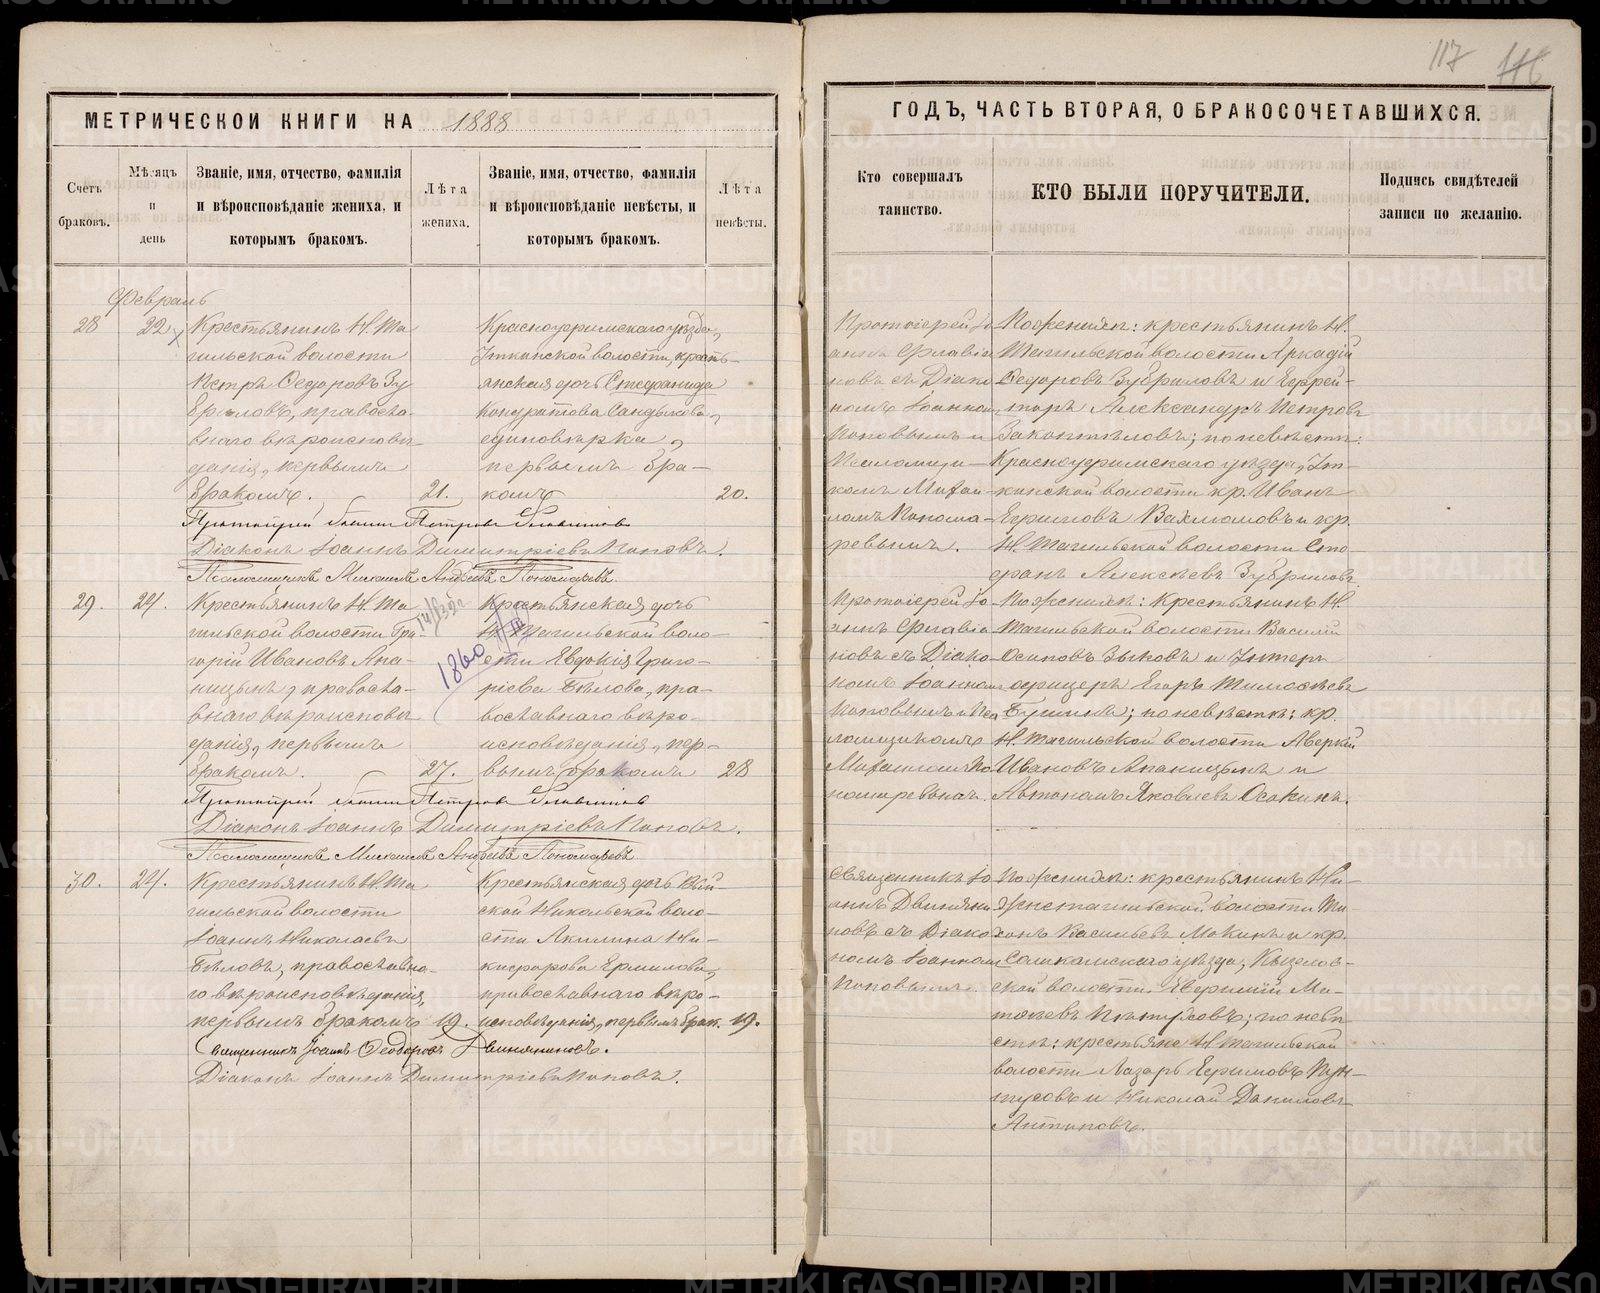 117
МЕТРИЧЕСКОЙ КНИГИ НА 1888
ГОДЪ, ЧАСТЬ ВТОРАЯ, О БРАКОСОЧЕТАВШИХСЯ.
Счетъ браковъ.
Мѣсяцъ и день
Званіе, имя, отчество, фамилія
и вѣроисповѣданіе жениха, и
которымъ бракомъ.
Лѣта
жениха.
Званіе, имя, отчество, фамилія
и вѣроисповѣданіе невѣсты, и
которымъ бракомъ.
Лѣта
невѣсты.
Кто совершалъ
таинство.
КТО БЫЛИ ПОРУЧИТЕЛИ.
Подпись свидѣтелей
записи по желанію.
Февраль
28
22
Крестьянинъ Н. Та
гильской волости
Петръ Ѳедоровъ Зу
бриловъ, правосла
внаго вѣроисповѣ
данія, первымъ
бракомъ.
21.
Красноуфимскаго уѣзда,
Уткинской волости, кресть-
янская дочь Стефанида
Кондратова
единовѣрка,
первымъ бра-
комъ
20.
Протоіерей Іо
аннъ Флавіа
новъ съ Діако
номъ Іоанномъ
Поповымъ и
Псаломщи-
комъ Михаи-
ломъ Понома-
ревымъ.
По женихѣ: крестьянинъ Н.
Тагильской волости Аркадій
Ѳедоровъ Зубриловъ и Ефрей-
торъ Александръ Петровъ
по невѣстѣ:
Красноуфимскаго уѣзда, Ут-
кинской волости кр. Иванъ
Ефимовъ и кр.
Н. Тагильской волости Сте
фанъ Алексѣевъ Зубриловъ.
Протоіерей Іоаннъ Петровъ Флавіановъ
Діаконъ Іоаннъ Димитріевъ Поповъ.
Псаломщикъ Михаилъ Андреевъ Пономаревъ.
29.
24.
Крестьянинъ Н. Та
гильской волости Гри
горій Ивановъ Ана-
ницынъ, правосла-
внаго вѣроисповѣ
данія, первымъ
бракомъ.
27.
1860
Крестьянская дочь
Н. Тагильской воло-
сти Евдокія Григо-
рієва Бѣлова, пра-
вославнаго вѣро-
исповѣданія, пер-
вымъ бракомъ
28
Протоіерей Іо
аннъ Флавіа
новъ съ Діако-
номъ Іоанномъ
Поповымъ и Пса
ломщикомъ
Михаиломъ По
номаревымъ.
По женихѣ: Крестьянинъ Н.
Тагильской волости Василій
Осиповъ Зыковъ и Унтеръ
офицеръ Егоръ Тимоѳѣевъ
по невѣстѣ: кр.
Н. Тагильской волости Аверкій
Ивановъ Ананицынъ и
Автономъ Яковлевъ Осокинъ.
Протоіерей Іоаннъ Петровъ Флавіановъ
Діаконъ Іоаннъ Димитріевъ Поповъ.
Псаломщикъ Михаилъ Андреевъ Пономаревъ
30.
24.
Крестьянинъ Н. Та
гильской волости
Іоаннъ Николаевъ
Бѣловъ, православна-
го вѣроисповѣданія,
первымъ бракомъ
19.
Крестьянская дочь Вый-
ской Никольской воло-
сти Акилина Ни-
кифорова Ермилова,
православнаго вѣро-
исповѣданія, первымъ брак.
19.
Священникъ Іо
аннъ Двиняни
новъ съ Діако
номъ Іоанномъ
Поповымъ.
По женихѣ: крестьянинъ Ни-
жнетагильской волости Ти-
хонъ Васильевъ Мокинъ и кр.
уѣзда,
ской волости Евфимій Ма-
тѳѣевъ по невѣ
стѣ: крестьяне Н. Тагильской
волости Лазарь Ефимовъ Пун-
тусовъ и Николай Даниловъ
Антиповъ.
Священникъ Іоаннъ Ѳеодоровъ Двиняниновъ.
Діаконъ Іоаннъ Димитріевъ Поповъ.
METRIKI.GASO-URAL.RU